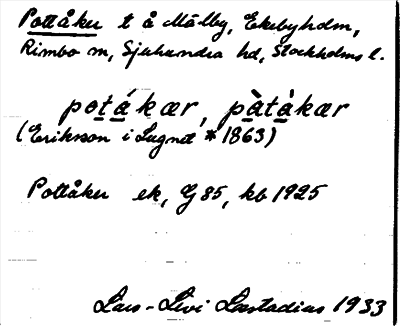 Pottåker t å Målby, Ekebyholm,
Rimbo sn, Sjuhundra hd, Stockholms l.
potákær, pàtàkær
(Erikson i Lugnet * 1863)
Pottåker ek, G 85, kb 1925
Lars-Levi Læstadius 1933